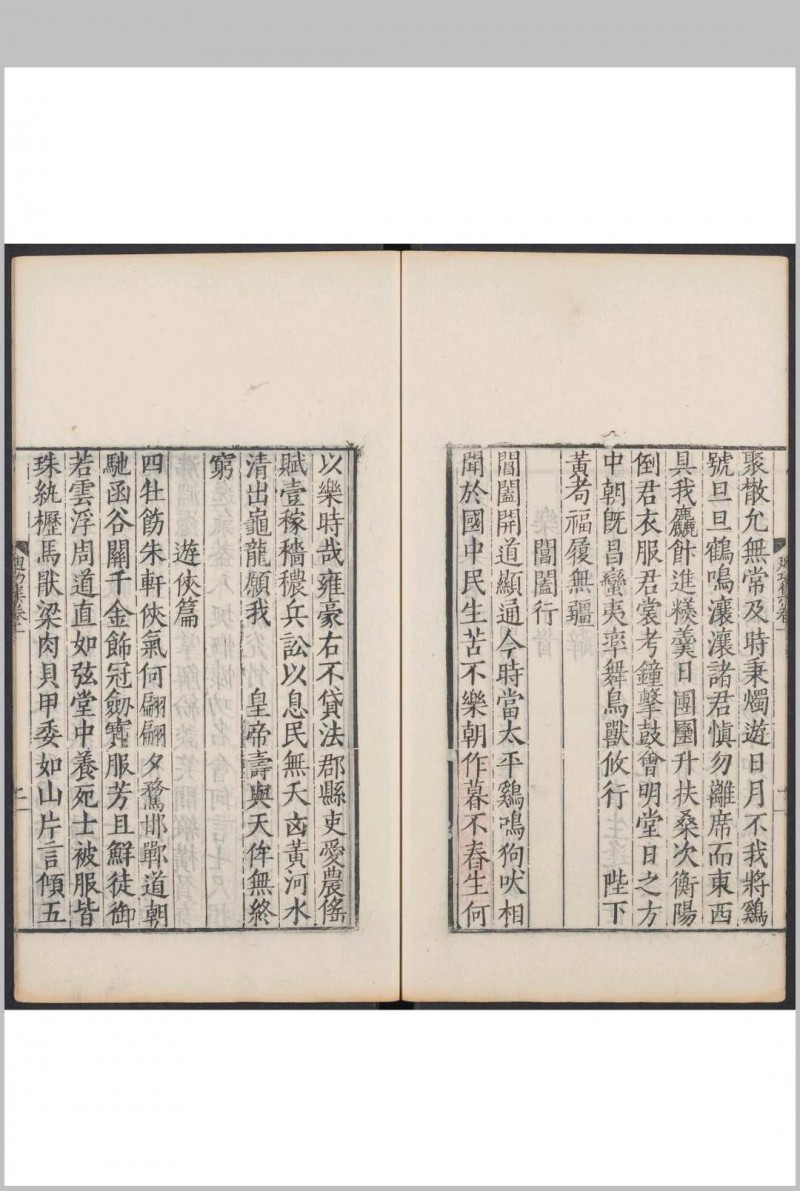 聚散允無常及時秉燭遊日月不我將鷄
號旦旦鶴鳴瀼瀼諸君愼勿離席而東西
具我麤餅進糝羹日團圞升扶桑次衡陽
倒君衣服君裳考鐘擊鼓會明堂日之方
中朝旣昌蠻夷率舞鳥獸攸行 陛下
黃耇福履無疆
閶闔行
閶闔開道顯通今時當太平鷄鳴狗吠相
聞於國中民生苦不樂朝作暮不舂生何
以樂時哉雍豪右不貸法郡縣吏愛農傜
賦壹稼穡穠兵訟以息民無夭凶黃河水
清出龜龍願我 皇帝壽與天侔無終
窮
遊俠篇
四牡飭朱軒俠氣何翩翩夕騖邯鄲道朝
馳函谷關千金飾冠劒寶服芳且鮮徒御
若雲浮周道直如弦堂中養死士被服皆
珠紈櫪馬猒梁肉貝甲委如山片言傾五